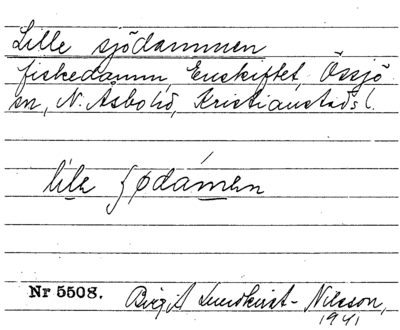 Lille sjödammen
fiskedamm, Enskiftet, Össjö
sn, N. Åsbo hd, Kristianstads l.
lilə ʃødámən
Nr 5508.
Birgit Lundkvist-Nilsson,
1941